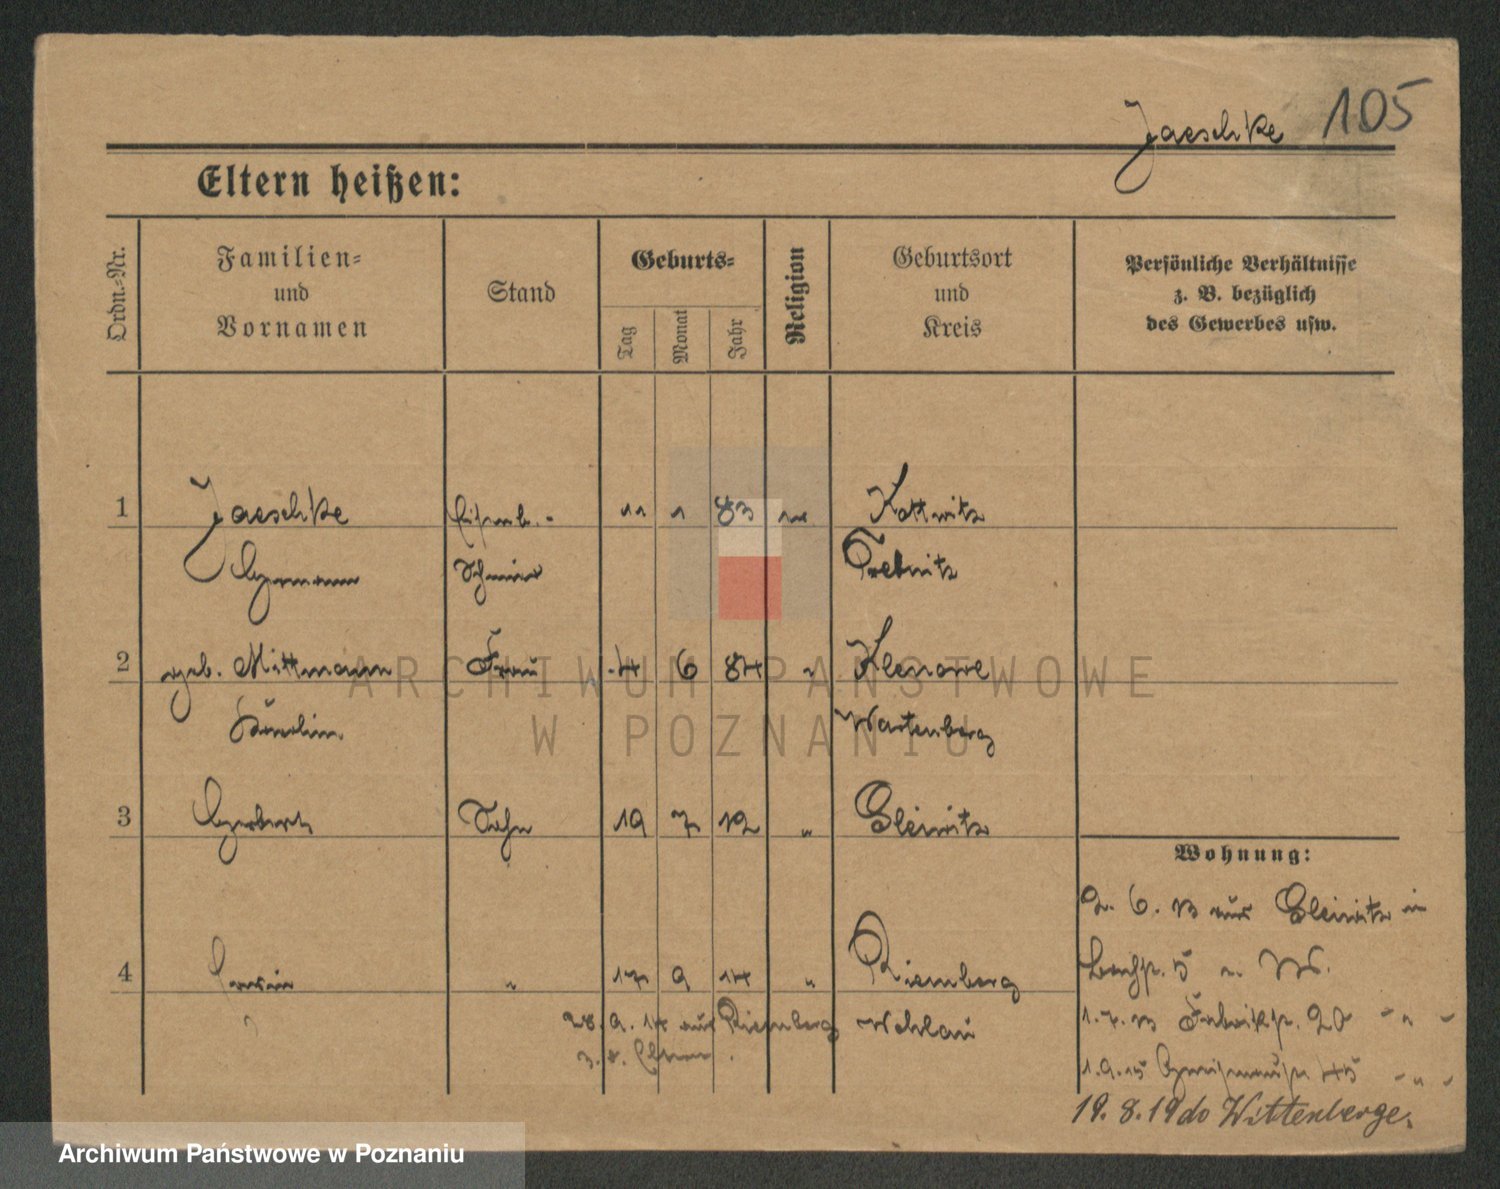 Jaeschke 105
Eltern heißen:
Ordn.-Nr.
Familien-
und
Vornamen
Stand
Geburts-
Tag
Monat
Jahr
Religion
Geburtsort
und
Kreis
Persönliche Verhältnisse
z. B. bezüglich
des Gewerbes usw.
1 Jaeschke Eisenb.- 11 1 83 Kottwitz
Hermann Schmied Trebnitz
2 geb. Mittmann Frau 4 6 84 "
Wartenberg
3 Herbert Sohn 19 7 12 " Gleinitz
Wohnung:
2. 6. 13 aus Gleinitz in
4 Erwin " 17 9 14 " Riemberg
28. 9. 14 aus Riemberg Wohlau
1. 7. 13 Fabrikstr. 20 " " "
3. 8. Eltern.
1. 9. 15 45 " " "
19. 8. 19 do Wittenberge.
ARCHIWUM PAŃSTWOWE
W POZNANIU
Archiwum Państwowe w Poznaniu